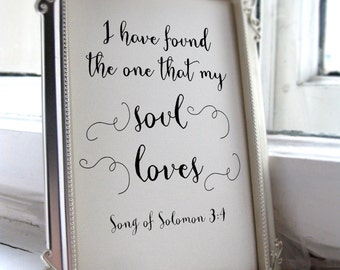 I have found
the one that my
soul
loves
Song of Solomon 3:4